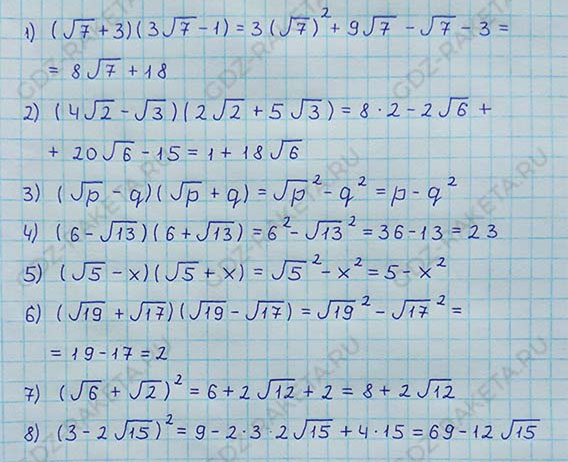 1) (√7 + 3)(3√7 − 1) = 3(√7)² + 9√7 − √7 − 3 =
= 8√7 + 18
2) (4√2 − √3)(2√2 + 5√3) = 8 · 2 − 2√6 +
+ 20√6 − 15 = 1 + 18√6
3) (√p − q)(√p + q) = √p² − q² = p − q²
4) (6 − √13)(6 + √13) = 6² − √13² = 36 − 13 = 23
5) (√5 − x)(√5 + x) = √5² − x² = 5 − x²
6) (√19 + √17)(√19 − √17) = √19² − √17² =
= 19 − 17 = 2
7) (√6 + √2)² = 6 + 2√12 + 2 = 8 + 2√12
8) (3 − 2√15)² = 9 − 2 · 3 · 2√15 + 4 · 15 = 69 − 12√15
GDZ-RAKETA.RU